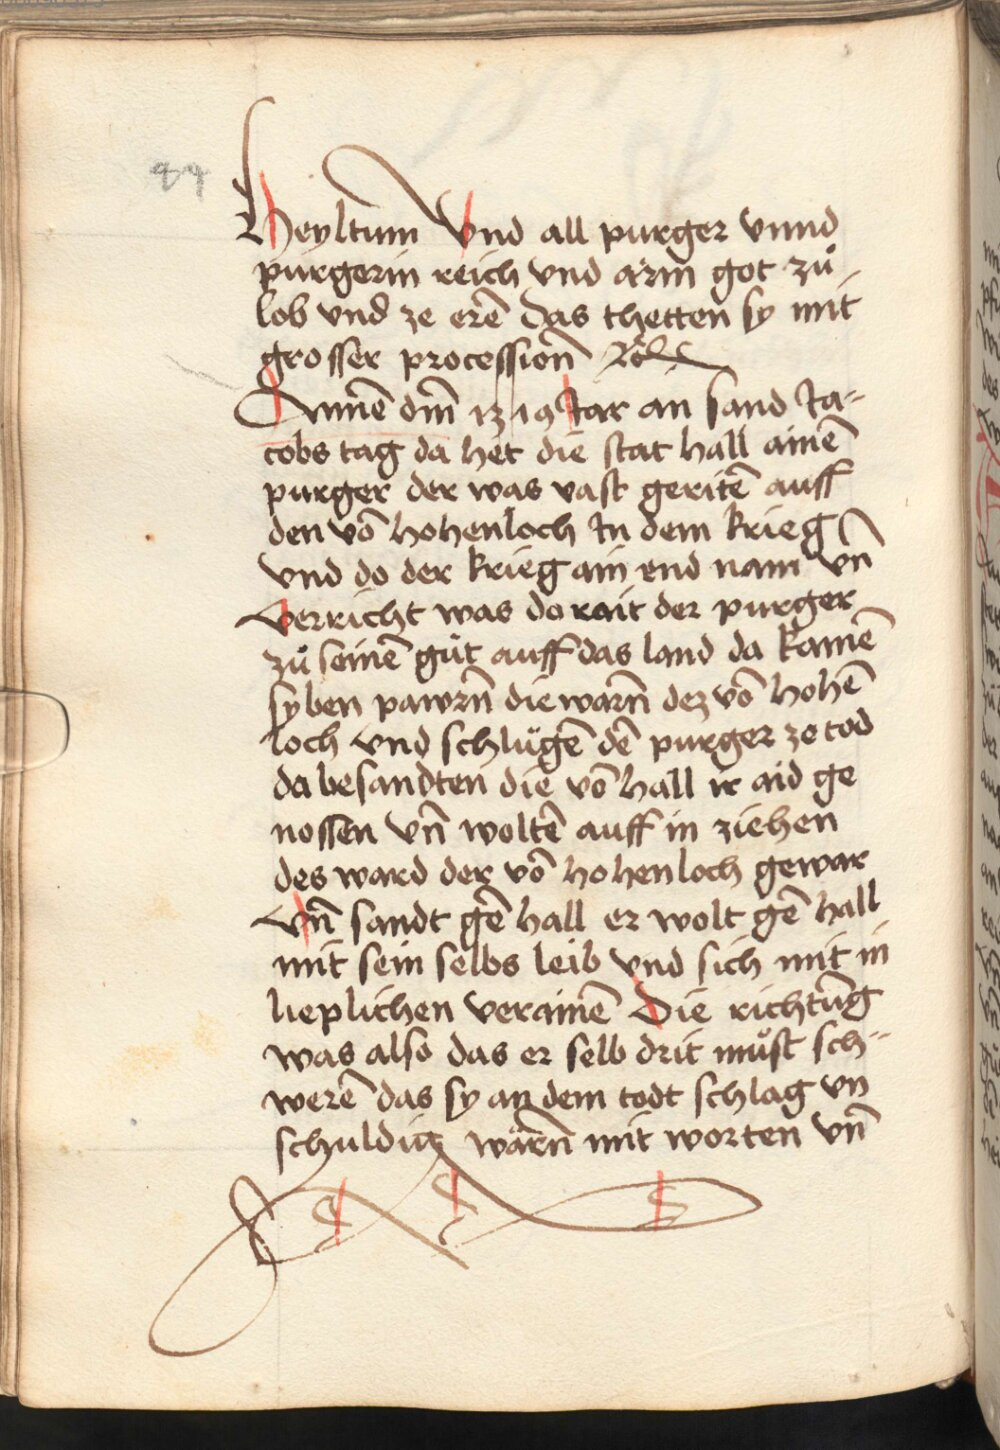 84
Heyltum Vnd all purger vnnd
purgerin reich vnd arm got zů
lob vnd ze erē das thetten sy mit
grosser processionñ
Annnē dm̄ Jar an sand Ja-
cobs tag da het die stat hall ainē
purger der was vast geritē auff
den vō hohenloch In dem krieg
vnd do der krieg ain end nam vn̄
verricht was do rait der purger
zů seinē gůt auff das land da kamē
syben pawrn̄ die warn̄ dez vō hohē
loch vnd schlůgē dē purger ze tod
da besandten die vō hall ir aid ge
nossen vn̄ woltē auff in ziehen
des ward der vō hohenloch gewar
Vn̄ sandt gē hall er wolt gē hall
mit sein selbs leib vnd sich mit in
lieplichen verainē Die richtūg
was also das er selb drit můst sch-
werē das sy an dem todt schlag vn
schuldig wärn̄ mit worten vn̄